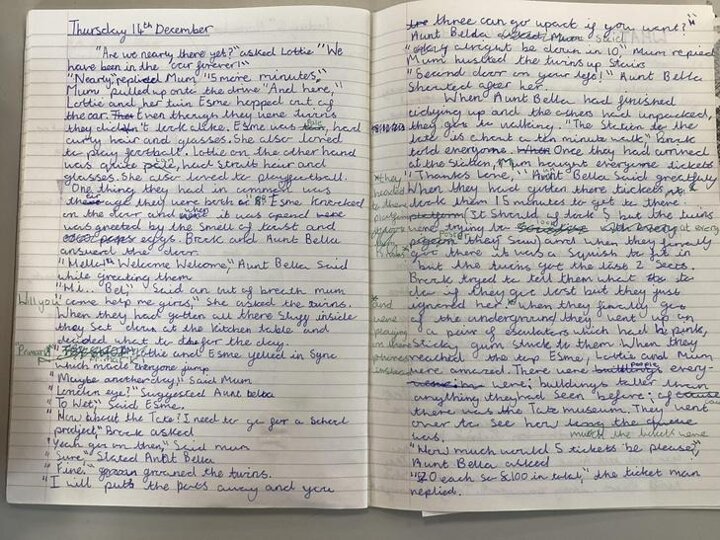 Thursday 14th December
"Are we nearly there yet?" asked Lottie "We
have been in the car forever!"
"Nearly," replied Mum "15 more minutes,"
Mum pulled up onto the drive "And here,"
Lottie and her twin Esme hopped out of
the car. Even though they were twins
they didn't look alike. Esme was had
curly hair and glasses. She also loved
to play football. Lottie on the other hand
was quite pale, had strait hair and
glasses. She also loved to play football.
One thing they had in common was
age they were both Esme knocked
on the door and when it was opend
was greeted by the smell of toast and
eggs. Brook and Aunt Bella
answerd the door.
"Hello! Welcome Welcome," Aunt Bella Said
while greeting them
"Hi.. Bel," Said an out of breath mum
"Will you come help me girls," She asked the twins.
When they had gotten all there stuff inside
they Sat down at the kitchen table and
decided what to do for the day.
"Primark!" Lottie and Esme yelled in Sync
which made everyone jump
"Maybe another day," Said Mum
"London eye?" Suggested Aunt bella
"To Wet," Said Esme.
"How about the Tate? I need to go for a School
project," Brook asked
"Yeah go on then," Said mum
"Sure" Stated Aunt Bella
"Fine," groaned the twins.
"I will put the pots away and you
three can go upart if you want?"
Aunt Belda Said
"Okay alright be down in 10," Mum repied
Mum hustled the twins up Stairs
"Second door on your left!" Aunt Bella
Shouted after her.
When Aunt Bella had finished
tidying up and the others had unpacked,
they got to walking. "The Station to the
tate is about a minute walk," Brook
told everyone. Once they had arrived
at the Station, Mum bought everyone tickets
"Thanks love," Aunt Bella Said greatfully
When they had gotten there tickets
took them 15 minutes to get to there
platform (It Should of took 5 but the twins
were trying to look at every
poster they Saw) and when they finally
got there it was a Squish to fit in
but the twins got the last 2 Seets.
Brook tryed to tell them what to
do if they got lost but they just
ignored her *When they finally got
of the underground they went up an
a pair of esculators which had be punk,
Sticky gum stuck to them When they
reached the top Esme, Lottie and Mum
were amazed. There were people every-
went; buildings taller than
anything they had Seen before; of course
there was the Tate museum. They went
over to See how much the tickets were
was.
"How much would 5 tickets be please,"
Aunt Bella asked
"£20 each So £100 in total," the ticket man
replied.
*they
headed
to there
*and
were
playing
on there
phones
instead